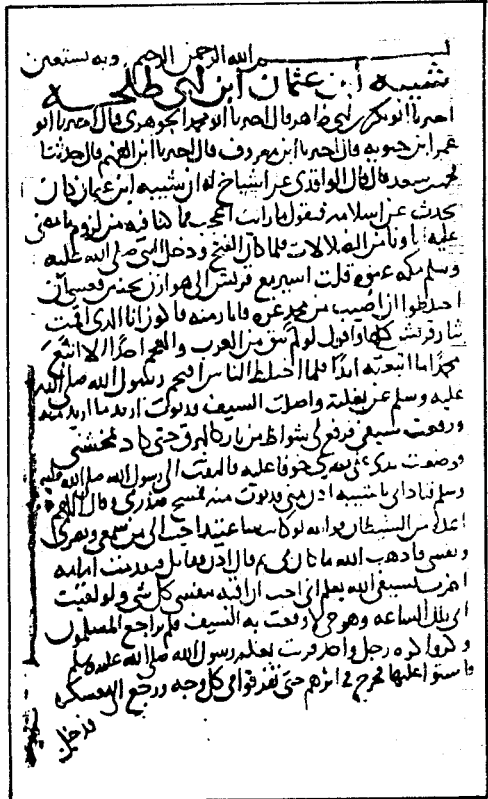 بسم الله الرحمن الرحيم وبه نستعين
شيبة ابن عثمان ابن ابي طلحة
اخبرنا ابو بكر بن ابي طاهر قال اخبرنا ابو محمد الجوهري قال اخبرنا ابو
عمر ابن حيويه قال اخبرنا ابن معروف قال اخبرنا ابن الفهم قال حدثنا
محمد بن سعد قال قال الواقدي عن اشياخ له ان شيبة ابن عثمان كان
يحدث عن اسلامه فيقول ما رايت اعجب مما كنا فيه من لزوم ما مضى
عليه اباونا من الضلالات فلما كان الفتح ودخل النبي صلى الله عليه
وسلم مكة عنوة قلت اسير مع قريش الى هوازن بحنين فعسى ان
اختلطوا ان اصيب من محمد غرة فاثار منه فاكون انا الذي اقمت
ثار قريش كلها واقول لو لم يبق من العرب والعجم احدا الا اتبع
محمدا ما اتبعته ابدا فلما اختلط الناس اقتحم رسول الله صلى الله
عليه وسلم عن بغلته واصلت السيف فدنوت اريد ما اريد منه
ورفعت سيفي فرفع لي شواظ من نار كالبرق حتى كاد يمحشني
فوضعت يدي على بصري خوفا عليه فالتفت الى رسول الله صلى الله عليه
وسلم فنادانى يا شيبة ادن مني فدنوت منه فمسح صدري وقال اللهم
اعذه من الشيطان فوالله لهو كان ساعتيذ احب الي من سمعي وبصري
ونفسي فاذهب الله ما كان بي ثم قال ادن فقاتل فتقدمت امامه
اضرب بسيفي الله يعلم اني احب ان اقيه بنفسي كل شي ولو لقيت
ابي تلك الساعة وهو حي لاوقعت به السيف فلم تراجع المسلمون
وكروا كرة رجل واحد قربت بغلة رسول الله صلى الله عليه وسلم
فاستوا عليها فخرج في اثرهم حتى تفرقوا في كل وجه ورجع الى معسكره
فدخل